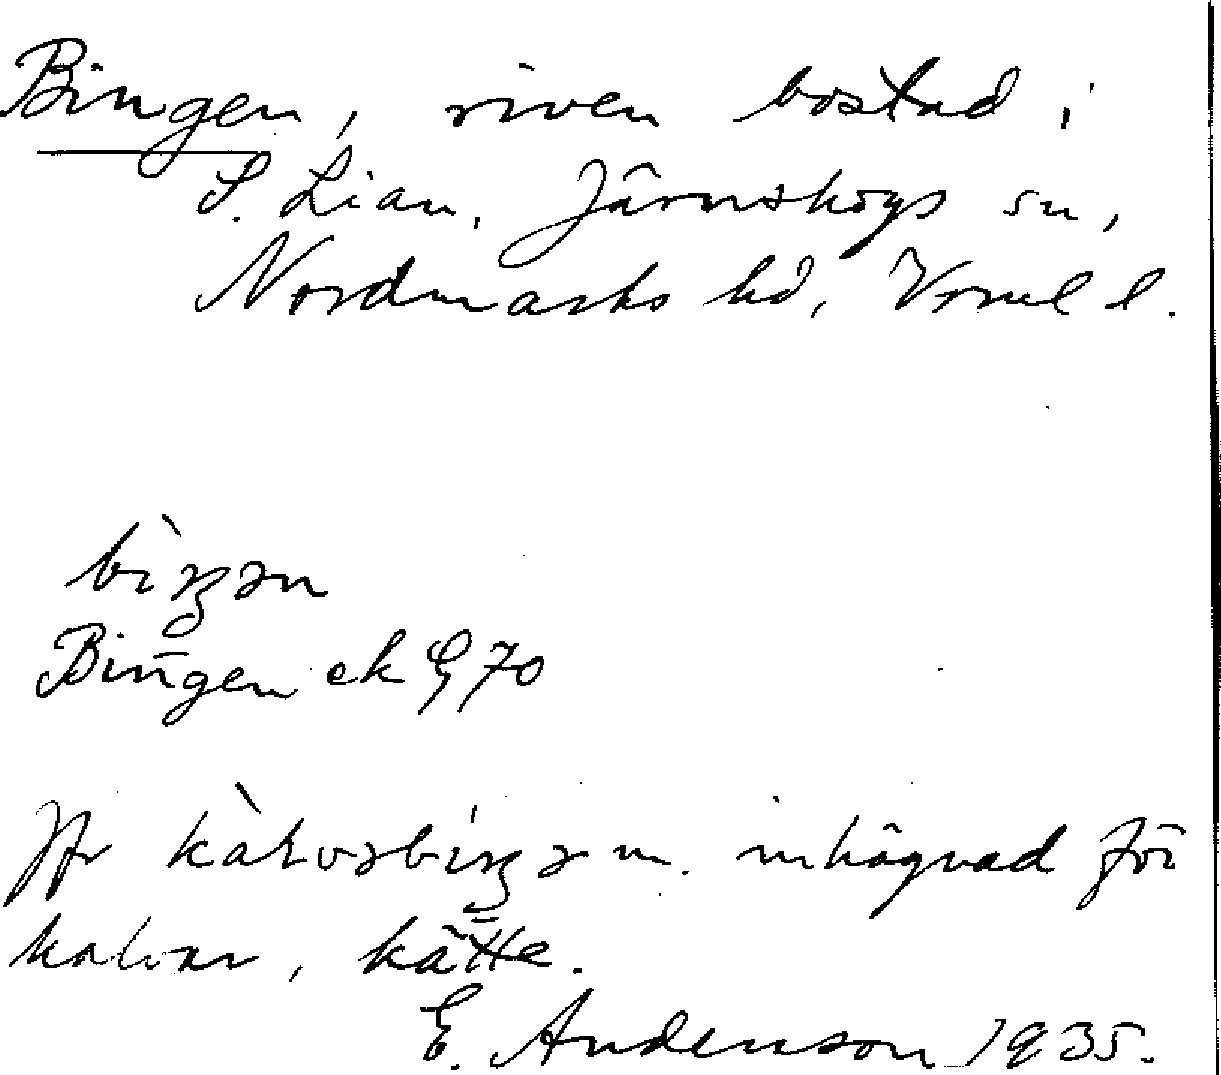 Bingen, riven bostad i
S. Lian, Järnskogs sn,
Nordmarks hd, Vrml l.
Bingen ek G 70
Jfr m. inhägnad för
kalvar, kätte.
E. Andersson 1935.